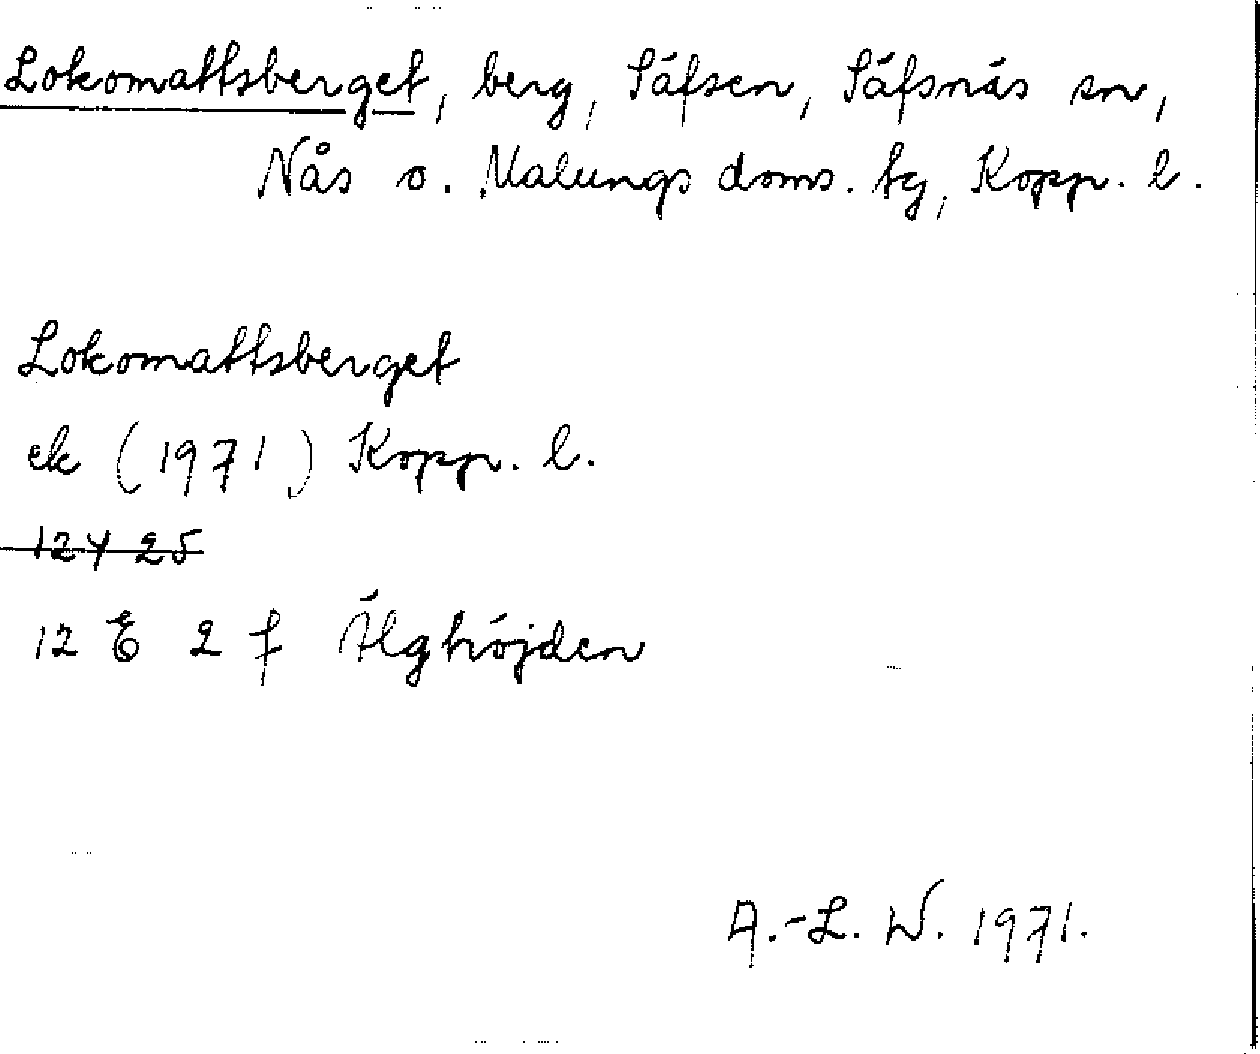 Lokomattsberget, berg, Säfsen, Säfsnäs sn,
Nås o. Malungs doms. tg, Kopp. l.
Lokomattsberget
ek (1971) Kopp. l.
12Y 25
12 E 2 f Älghöjden
A.-L. W. 1971.